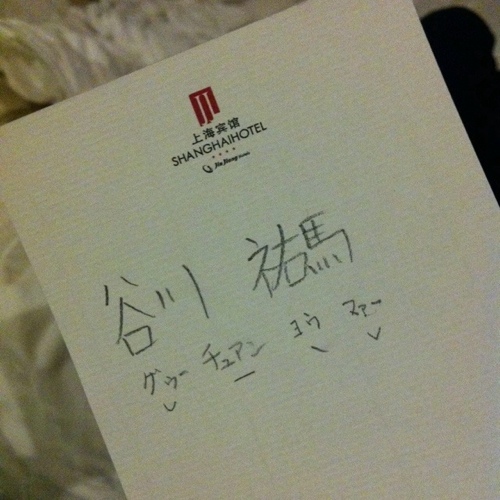 上海宾馆
SHANGHAIHOTEL
★★★★
Jin Jiang Hotels
谷川 祐馬
グゥー チュアン ヨウ マァー